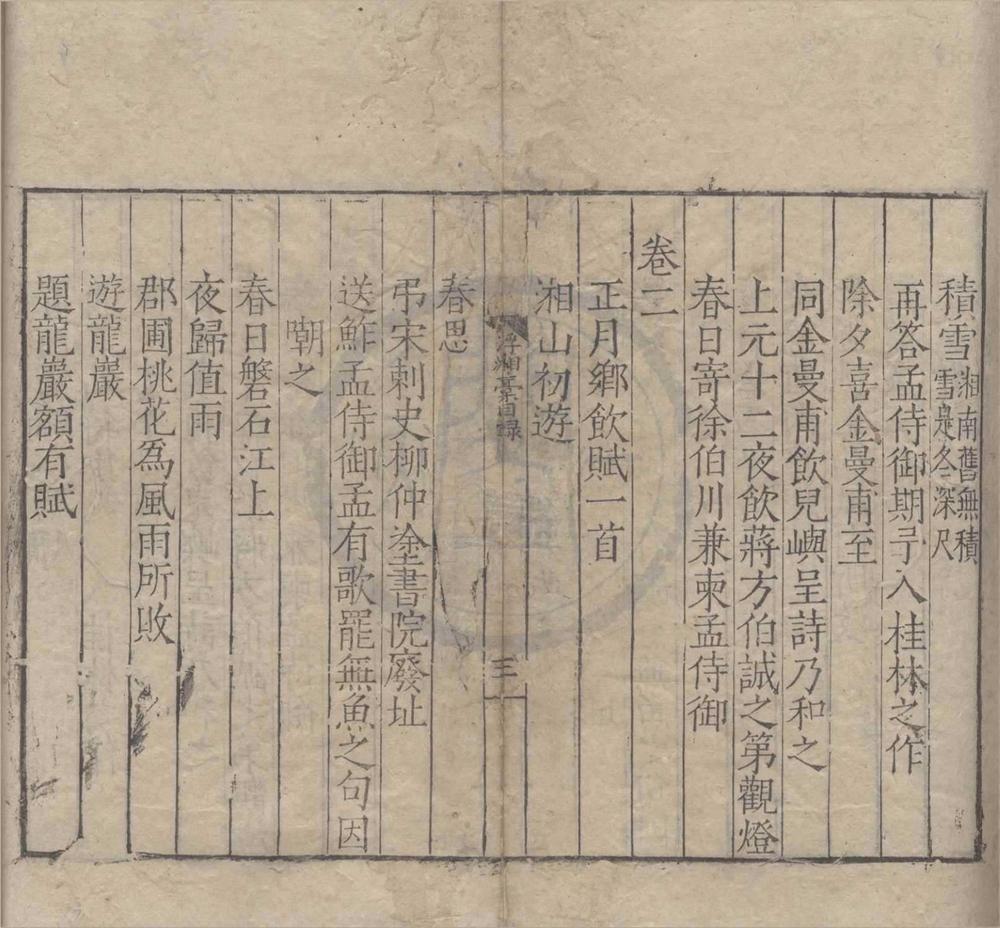 積雪湘南舊無積雪是冬深尺
再答孟侍御期予入桂林之作
除夕喜金曼甫至
同金曼甫飲兒嶼呈詩乃和之
上元十二夜飲蔣方伯誠之第觀燈
春日寄徐伯川兼柬孟侍御
卷二
正月鄉飲賦一首
湘山初遊
浮湘藁目録
三
春思
弔宋刺史柳仲塗書院廢址
送鮓孟侍御孟有歌罷無魚之句因
嘲之
春日磐石江上
夜歸值雨
郡圃桃花為風雨所敗
遊龍巖
題龍巖額有賦